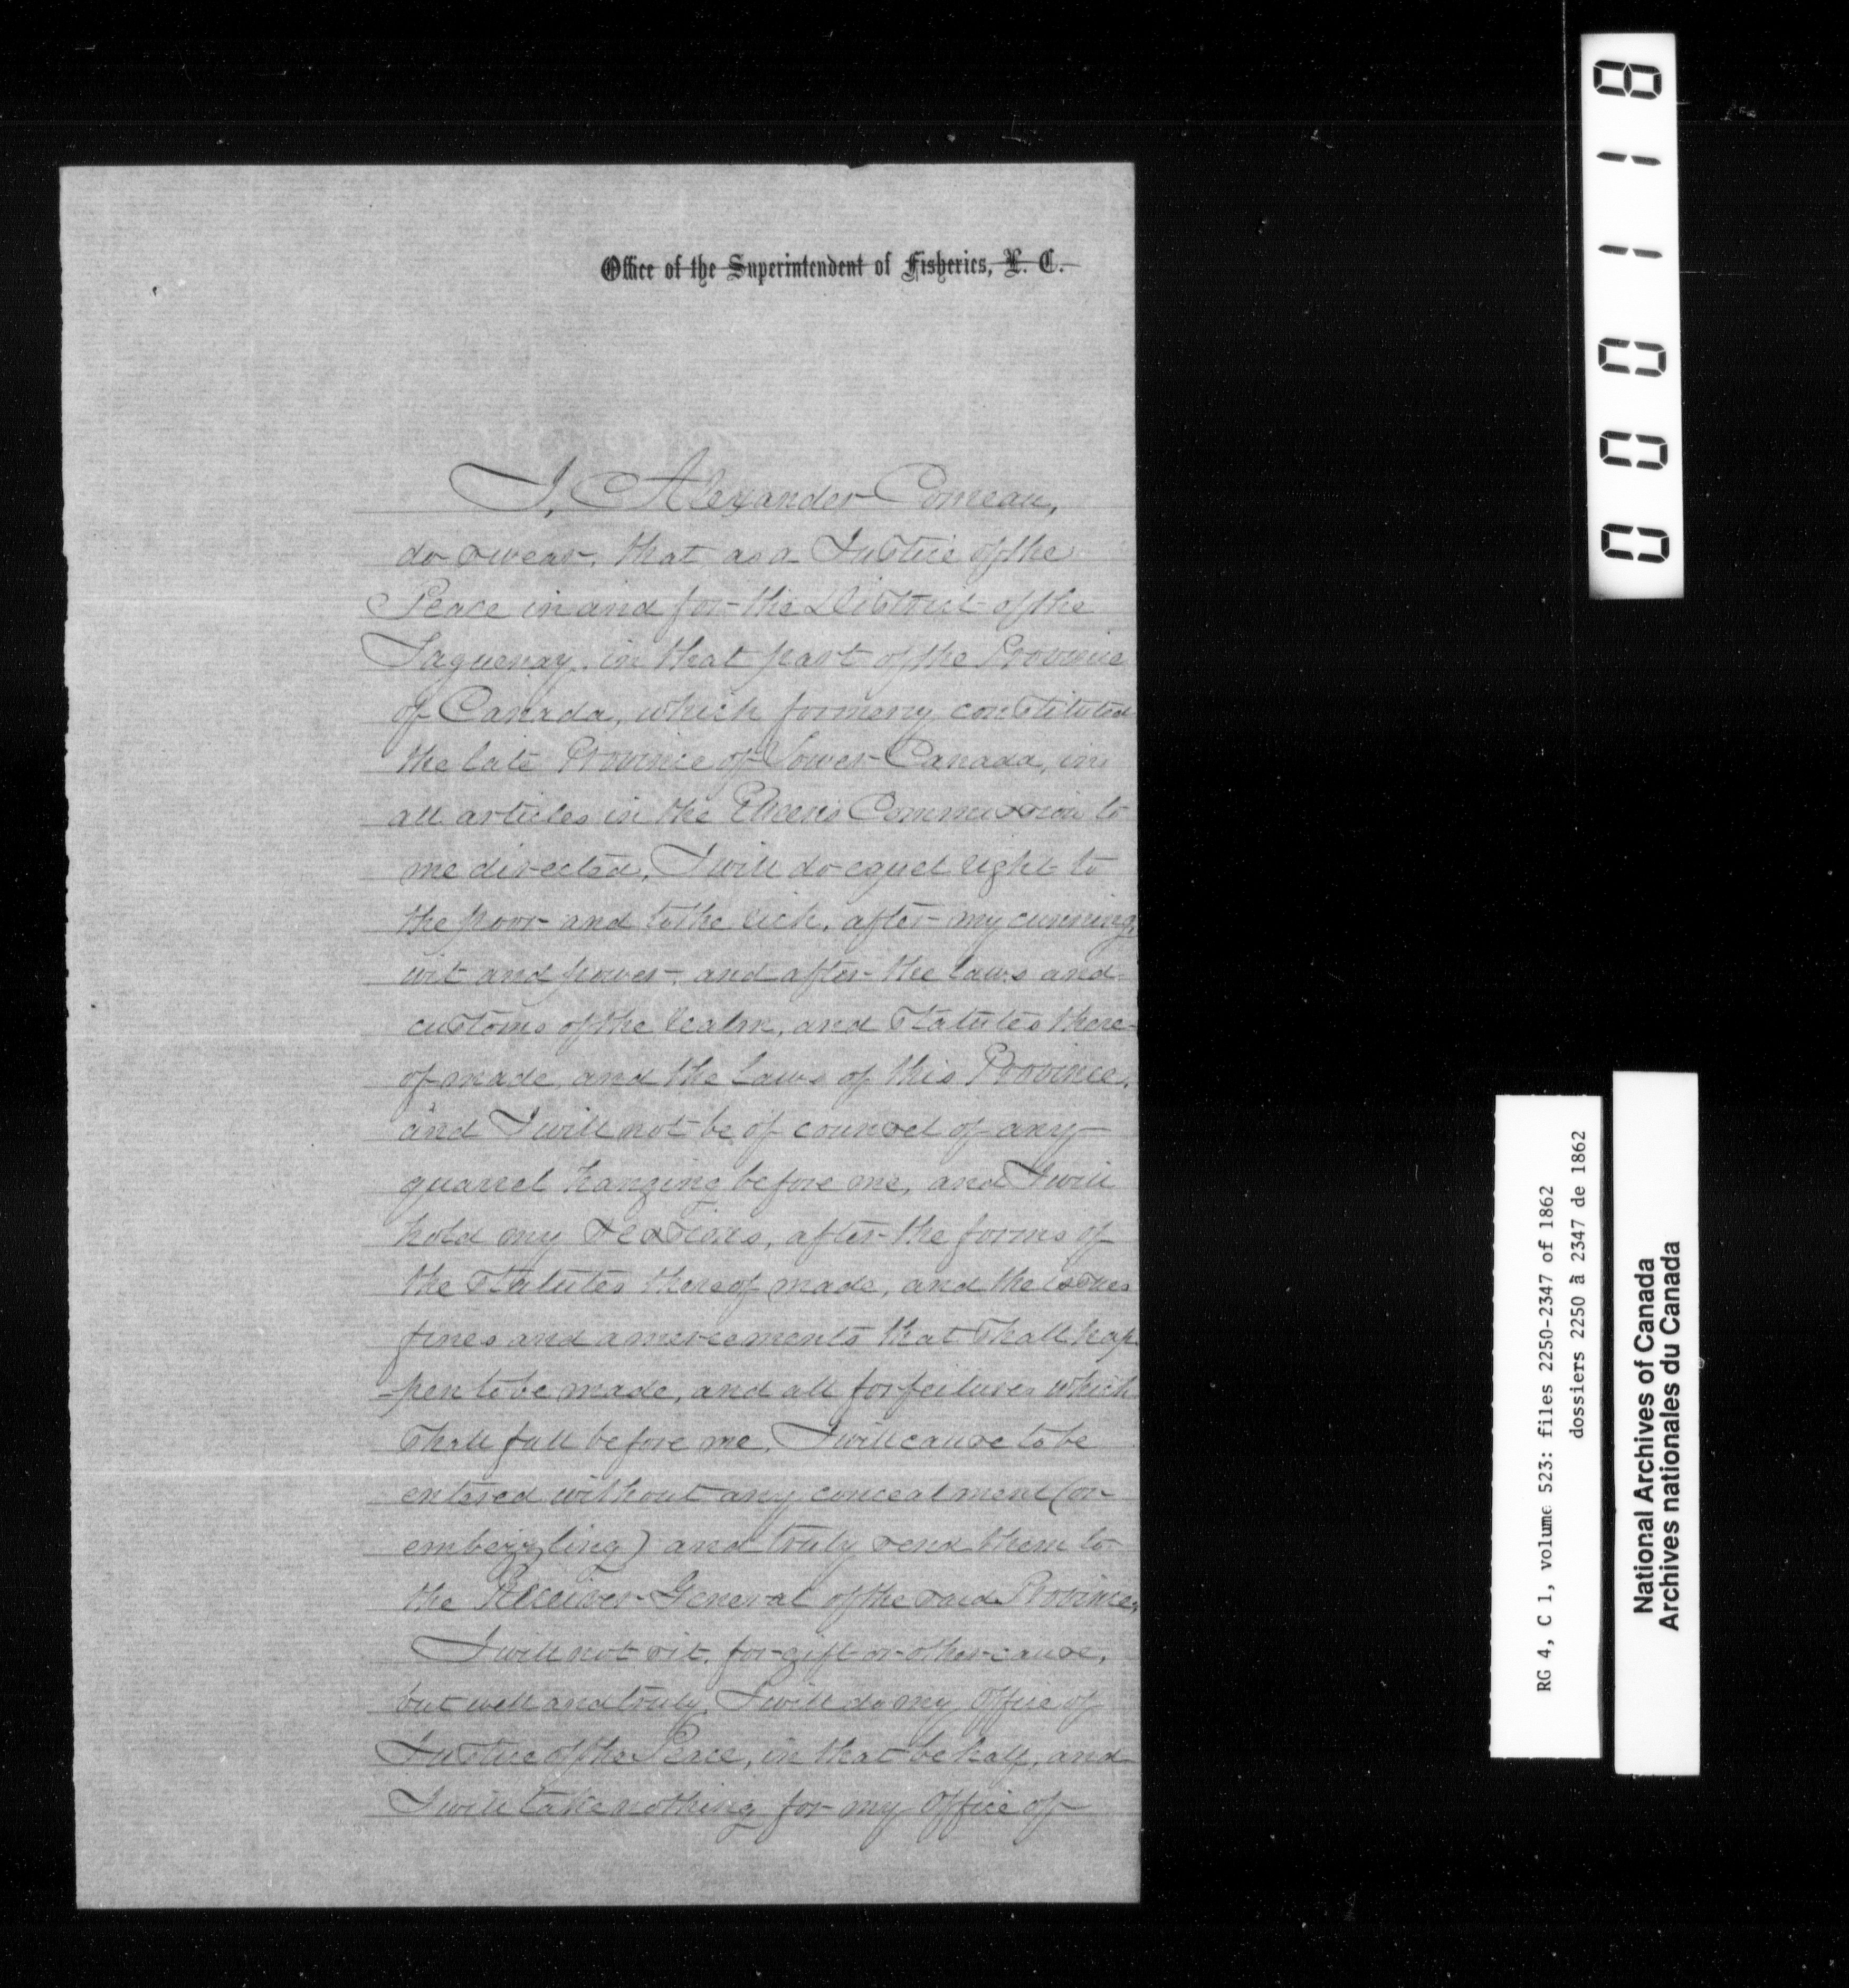 Office of the Superintendent of Fisheries, L. C.
I, Alexander Comeau,
do swear, that as a Justice of the
Peace in and for the District of the
Saguenay, in that part of the Province
of Canada, which formerly constituted
the late Province of Lower Canada, in
all articles in the Queen's Commission to
me directed, I will do equal right to
the poor and to the rich, after my cunning,
wit and power, and after the laws and
customs of the realm, and Statutes there-
of made, and the Laws of this Province,
and I will not be of counsel of any
quarrel hanging before me, and I will
hold my sessions, after the forms of
the Statutes thereof made, and the issues
fines and amercements that shall hap
-pen to be made, and all forfeitures which
shall fall before me, I will cause to be
entered without any concealment (or
embezzling) and truly send them to
the Receiver General of the said Province,
I will not sit, for gift or other cause,
but well and truly I will do my Office of
Justice of the Peace, in that behalf, and
I will take nothing for my Office of
000118
RG 4, C 1, volume 523: files 2250-2347 of 1862
dossiers 2250 à 2347 de 1862
National Archives of Canada
Archives nationales du Canada